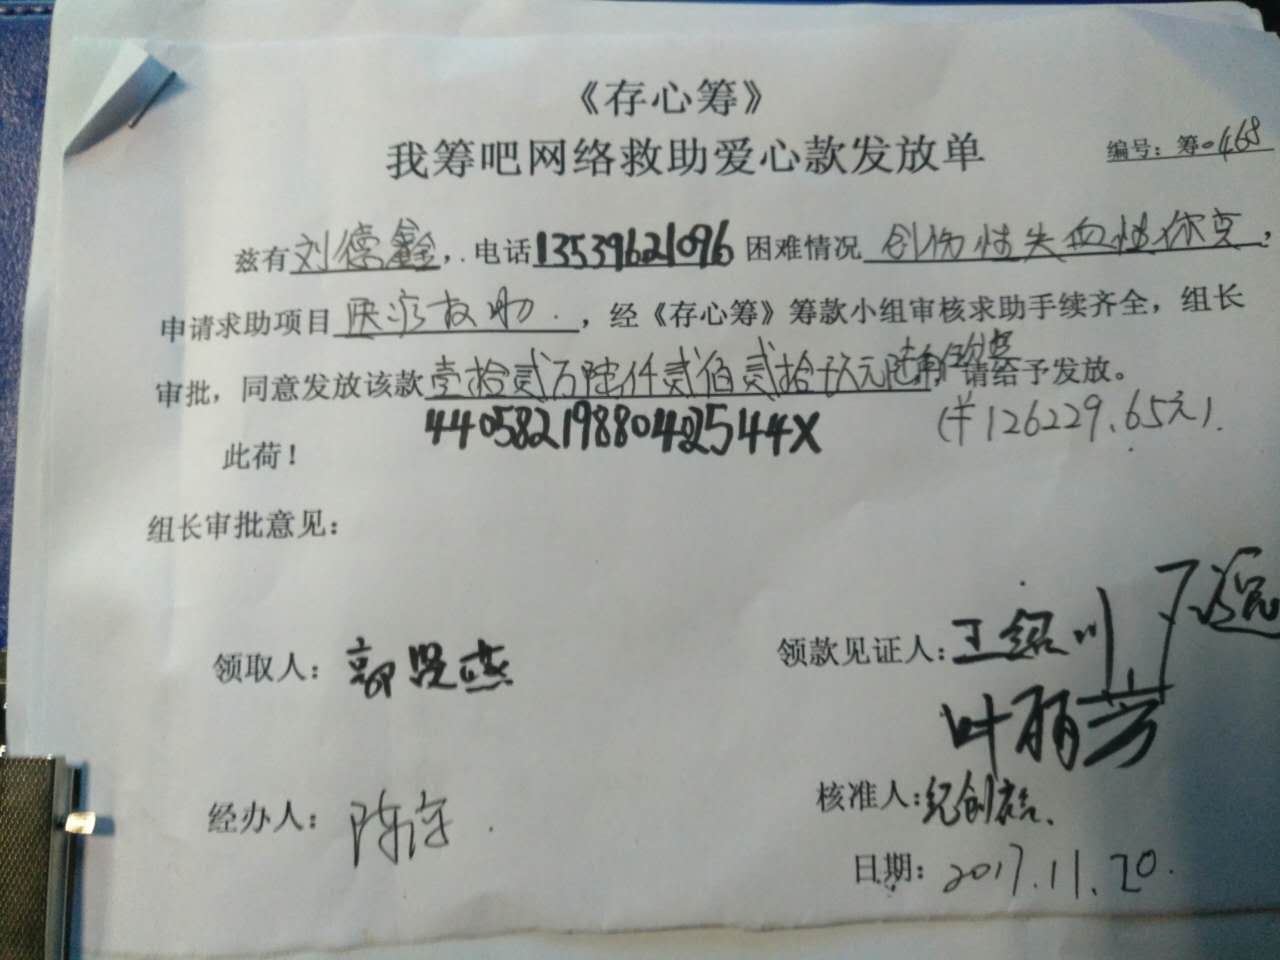 《存心筹》
我筹吧网络救助爱心款发放单
编号：筹0468
兹有刘德鑫，电话13539621096困难情况创伤性失血性休克，
申请求助项目医疗救助，经《存心筹》筹款小组审核求助手续齐全，组长
审批，同意发放该款壹拾贰万陆仟贰佰贰拾玖元陆角伍分 请给予发放。
44058219880402544X
(¥126229.65元).
此荷！
组长审批意见：
领取人：郭 燕
领款见证人：王绍川
叶丽芳
经办人：陈
核准人：纪创
日期：2017.11.20.